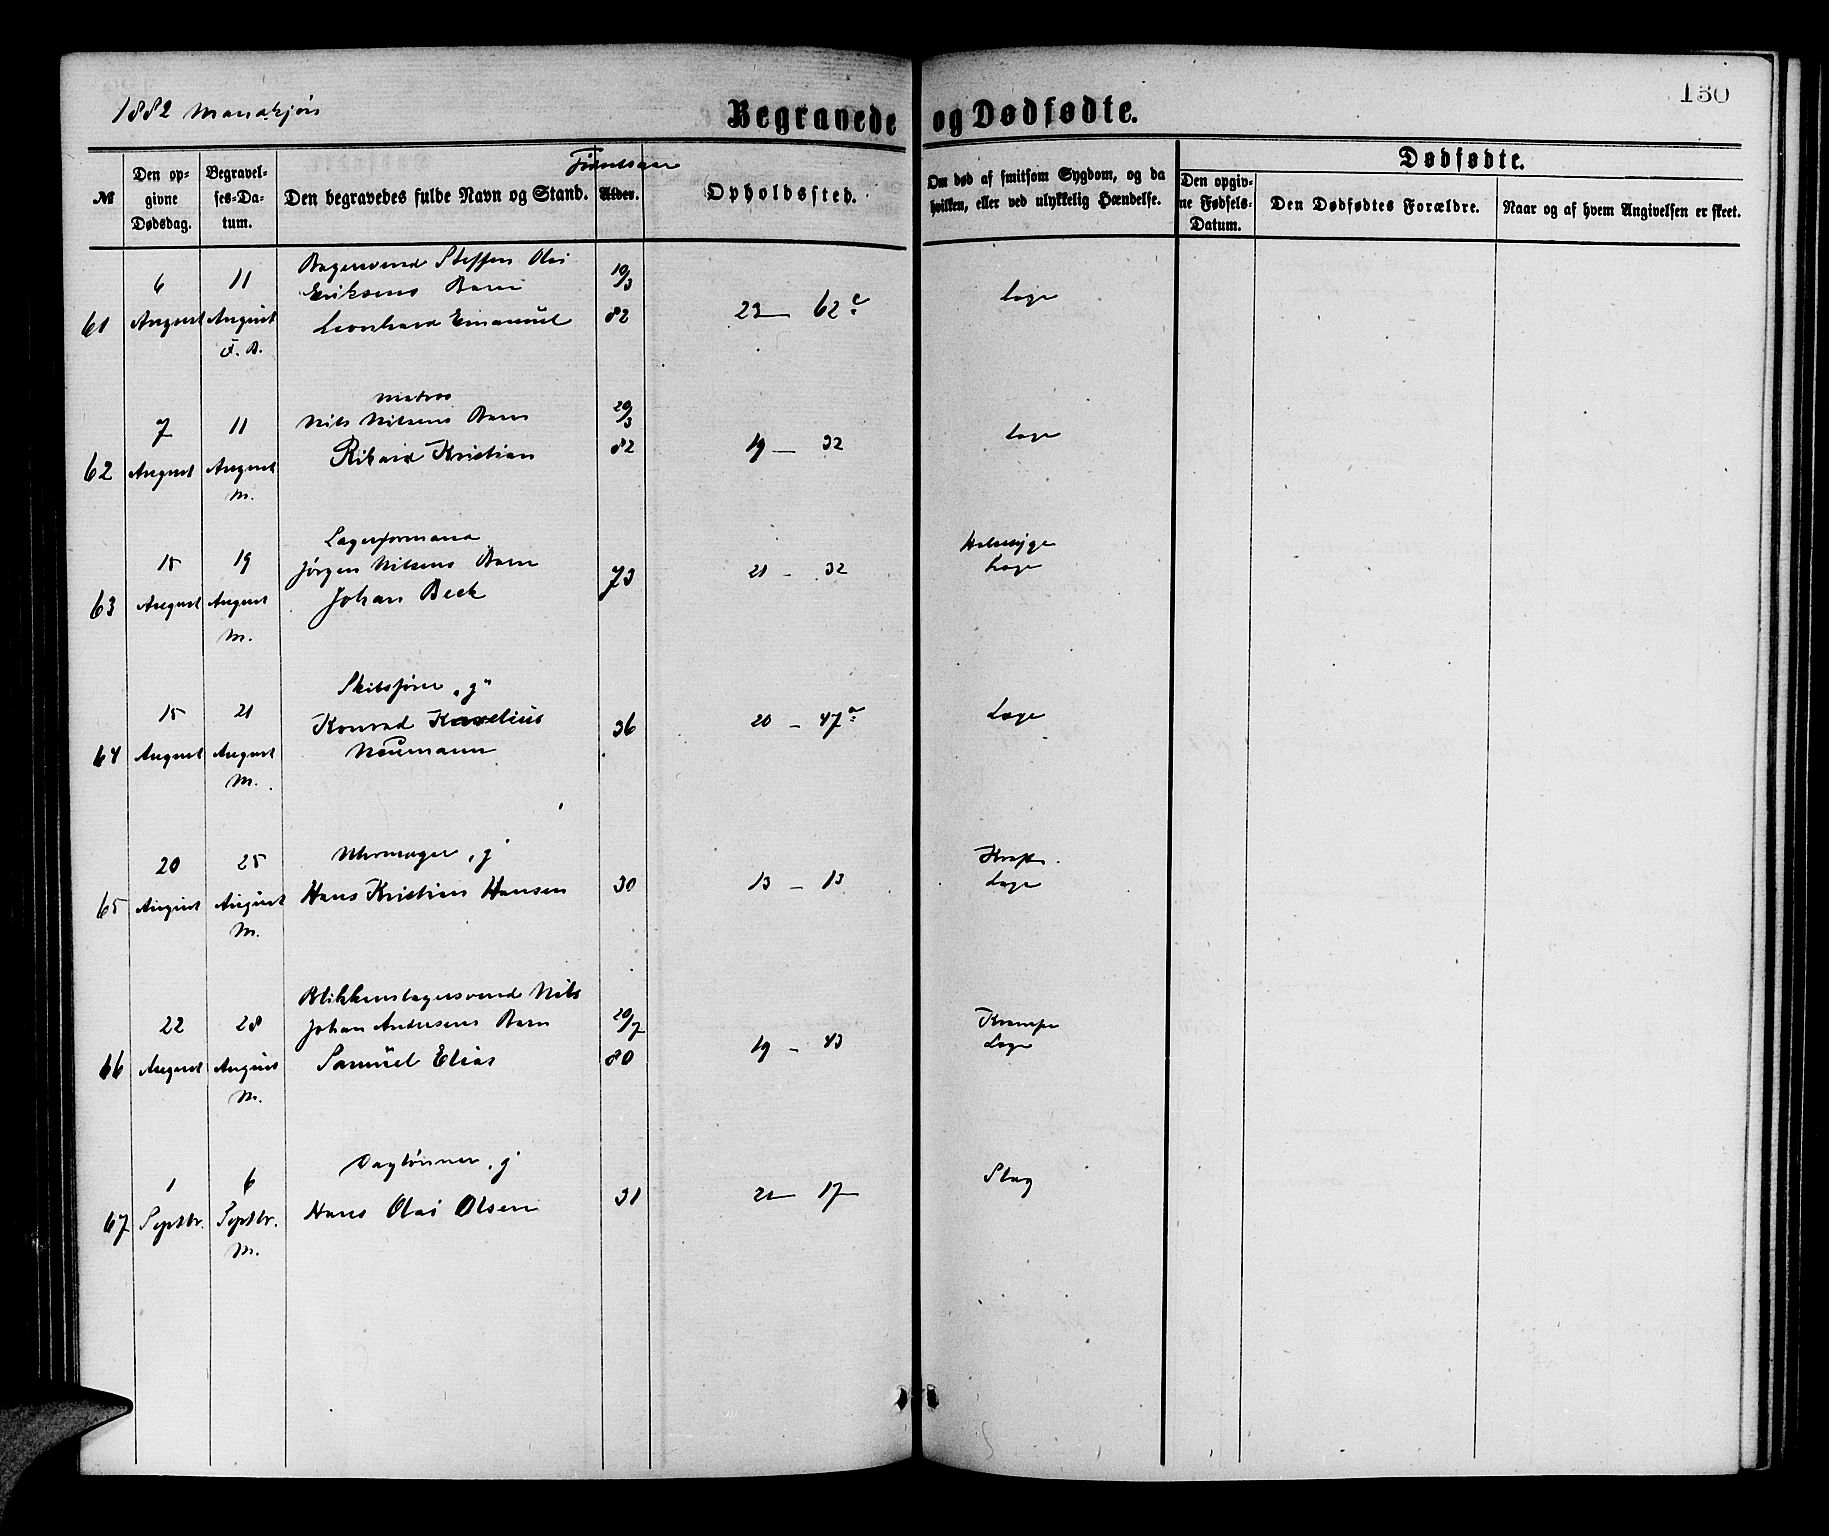 1882 Mandkjøn
Begravede og Dødfødte.
130
Dødfødte.
№
Den opgivne Dødsdag.
Begravelses-Datum.
Den begravedes fulde Navn og Stand.
Fødselsaar
Alder.
Opholdssted.
Om død af smitsom Sygdom, og da hvilken, eller ved ulykkelig Hændelse.
Den opgivne Fødsels-Datum.
Den Dødfødtes Forældre.
Naar og af hvem Angivelsen er skeet.
61 6 August 11 August F. B.
Bagersvend Steffen Olai
Eriksens Barn
Leonhard Emanuel
19/3 82
23 — 62 c
Læge
62 7 August 11 August M.
Matros
Nils Nilsens Barn
Rikard Kristian
29/3 82
19 — 32
Læge
63 15 August 19 August M.
Lagerformand
Jørgen Nilsens Barn
Johan Beck
73
21 — 32
Halssyge
Læge
64 15 August 21 August M.
Skibsfører „g"
Konrad Kornelius
Neumann
36
20 — 47 a
Læge
65 20 August 25 August M.
Uhrmager „g"
Hans Kristian Hansen
30
13 — 13
Læge
66 22 August 28 August M.
Blikkenslagersvend Nils
Johan Andersens Barn
Samuel Elias
29/7 80
19 — 43
Krampe
Læge
67 1 Septbr. 6 Septbr. M.
Daglønner „g"
Hans Olai Olsen
31
21 — 17
Slag